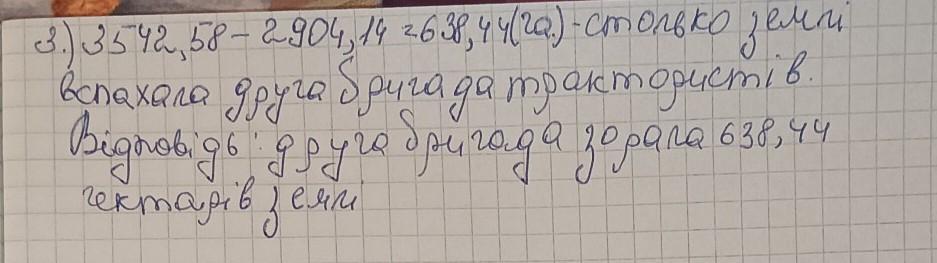 3.) 3542,58 - 2904,14 = 638,44 (га.) - столько землі
вспахала друга бригада трактористів.
Відповідь: друга бригада зорала 638,44
гектарів землі